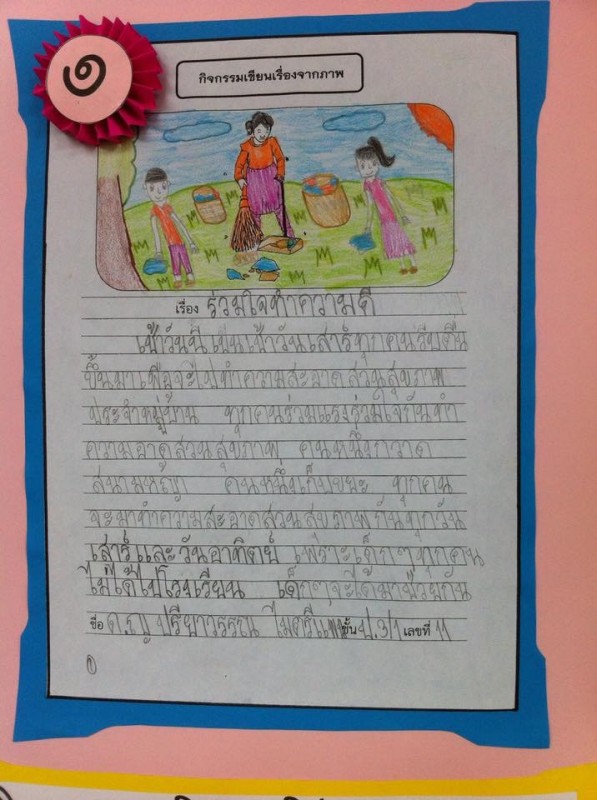 ๓
กิจกรรมเขียนเรื่องจากภาพ
เรื่อง ร่วมใจทำความดี
เช้าวันนี้เป็นเช้าวันเสาร์ทุกคนรีบตื่น
ขึ้นมาเพื่อจะไปทำความสะอาดสวนสุขภาพ
ประจำหมู่บ้าน ทุกคนร่วมแรงร่วมใจกันทำ
ความอาดสวนสุขภาพ คนหนึ่งกวาด
สนามหญ้า คนหนึ่งเก็บขยะ ทุกคน
จะมาทำความสะอาดสวนสุขภาพกันทุกวัน
เสาร์และวันอาทิตย์ เพราะเด็กๆทุกคน
ไม่ได้ไปโรงเรียน เด็กๆจะได้มาช่วยกัน
ชื่อ ด.ญ ปรียาวรรณ ชั้น ป.3/1 เลขที่ 11